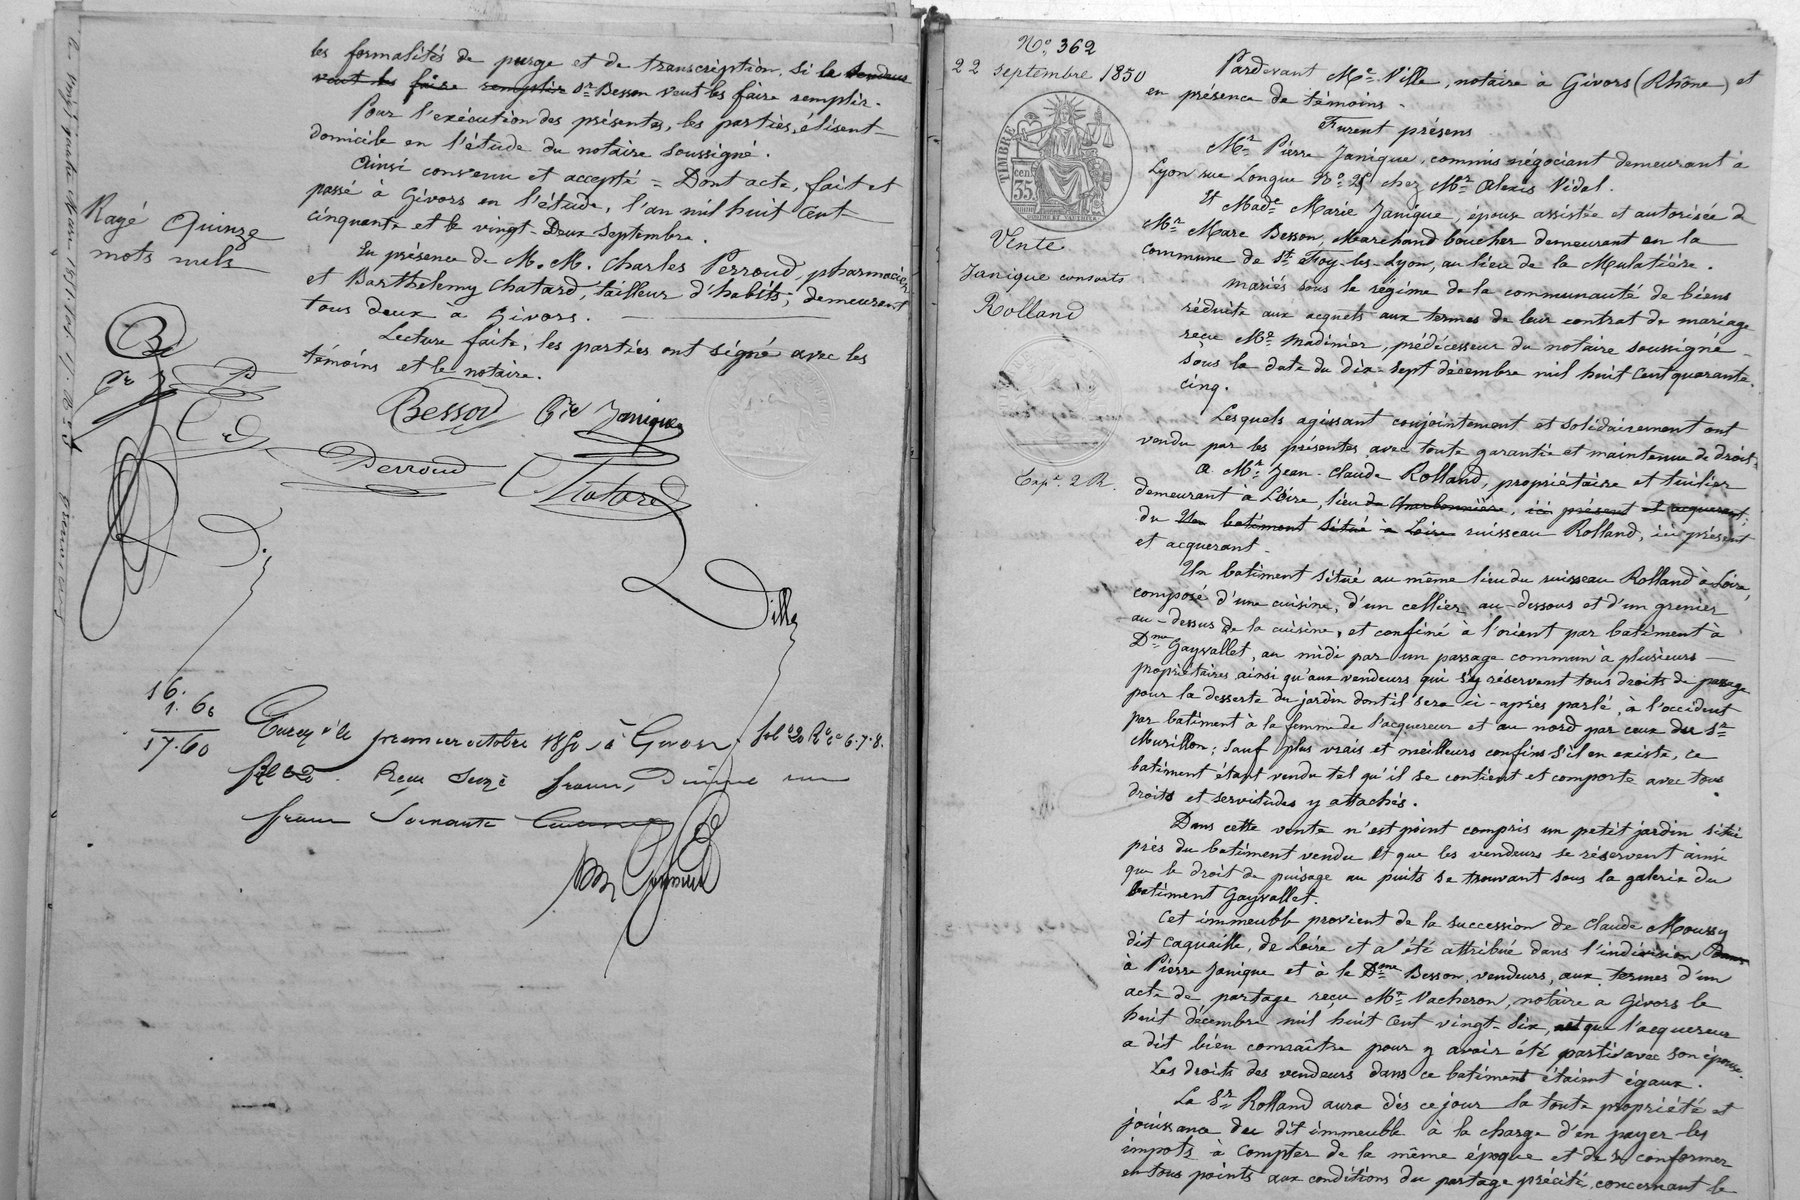 les formalités de purge et de transcription, si le vendeur
veut les faire remplir Sr Besson veut les faire remplir.
Pour l'exécution des présentes, les parties élisent
domicile en l'étude du notaire soussigné.
Ainsi convenu et accepté = Dont acte, fait et
passé à Givors en l'étude, l'an mil huit cent
cinquante et le vingt-Deux Septembre.
En présence de M.M. Charles Perroud, pharmacien
et Barthelemy Chatard, tailleur d'habits, demeurant
tous deux à Givors.
Lecture faite, les parties ont signé avec les
témoins et le notaire.
Rayé Quinze
mots nuls
Besson Pre Janique
Perroud Chatard
Ville
16.
1. 60
17.60
Enreg. à le premier octobre 1850 à Givors. fol. 20 Ro Ce 6.7.8.
Reçu Seize francs, Dixième un
franc Soixante Centimes
No. 362
22 septembre 1850
TIMBRE
35
Vente
Janique consorts
Rolland
Expn 2 R.
Pardevant Me Ville, notaire à Givors (Rhône) et
en présence de témoins.
Furent présens
Mr Pierre Janique, commis négociant demeurant à
Lyon rue Longue No 25 chez Mr Alexis Vidal.
Et Made Marie Janique, épouse assistée et autorisée d
Mr Marc Besson, Marchand boucher demeurant en la
commune de Ste Foy-les-Lyon, au lieu de la Mulatière.
mariés sous le régime de la communauté de biens
réduite aux acquets aux termes de leur contrat de mariage
reçu Me Madinier, prédécesseur du notaire soussigné
sous la date du dix-sept décembre mil huit cent quarante
cinq.
Lesquels agissant conjointement et solidairement ont
vendu par les présentes avec toute garantie et maintenue de droit
a Mr Jean-Claude Rolland, propriétaire et tuilier
demeurant à Loire, lieu de Charbonnière, ici présent et acquerant,
du Un batiment situé à Loire ruisseau Rolland, ici présent
et acquerant.
Un batiment situé au même lieu du ruisseau Rolland à Loire,
composé d'une cuisine, d'un cellier au-dessous et d'un grenier
au-dessus de la cuisine, et confiné à l'orient par batiment à
Dme Gayvallet, au midi par un passage commun à plusieurs
propriétaires ainsi qu'aux vendeurs qui s'y réservent tous droits de passage
pour la desserte du jardin dont il sera ci-après parlé, à l'occident
par batiment à la femme de l'acquereur et au nord par ceux du Sr
Murillon; sauf plus vrais et meilleurs confins s'il en existe, ce
batiment étant vendu tel qu'il se contient et comporte avec tous
droits et servitudes y attachés.
Dans cette vente n'est point compris un petit jardin situé
près du batiment vendu et que les vendeurs se réservent ainsi
que le droit de puisage au puits se trouvant sous la galerie du
batiment Gayvallet.
Cet immeuble provient de la succession de Claude Moussy
dit Caquaille, de Loire et a été attribué dans l'indivision dans
à Pierre Janique et à la Dme Besson, vendeurs, aux termes d'un
acte de partage reçu Me Vacheron, notaire a Givors le
huit décembre mil huit cent vingt-six, et que l'acquereur
a dit bien connaître pour y avoir été partie avec son épouse.
Les droits des vendeurs dans ce batiment étaient égaux.
Le Sr Rolland aura dès ce jour la toute propriété et
jouissance du dit immeuble à la charge d'en payer les
impots à compter de la même époque et de se conformer
en tous points aux conditions du partage précité concernant le